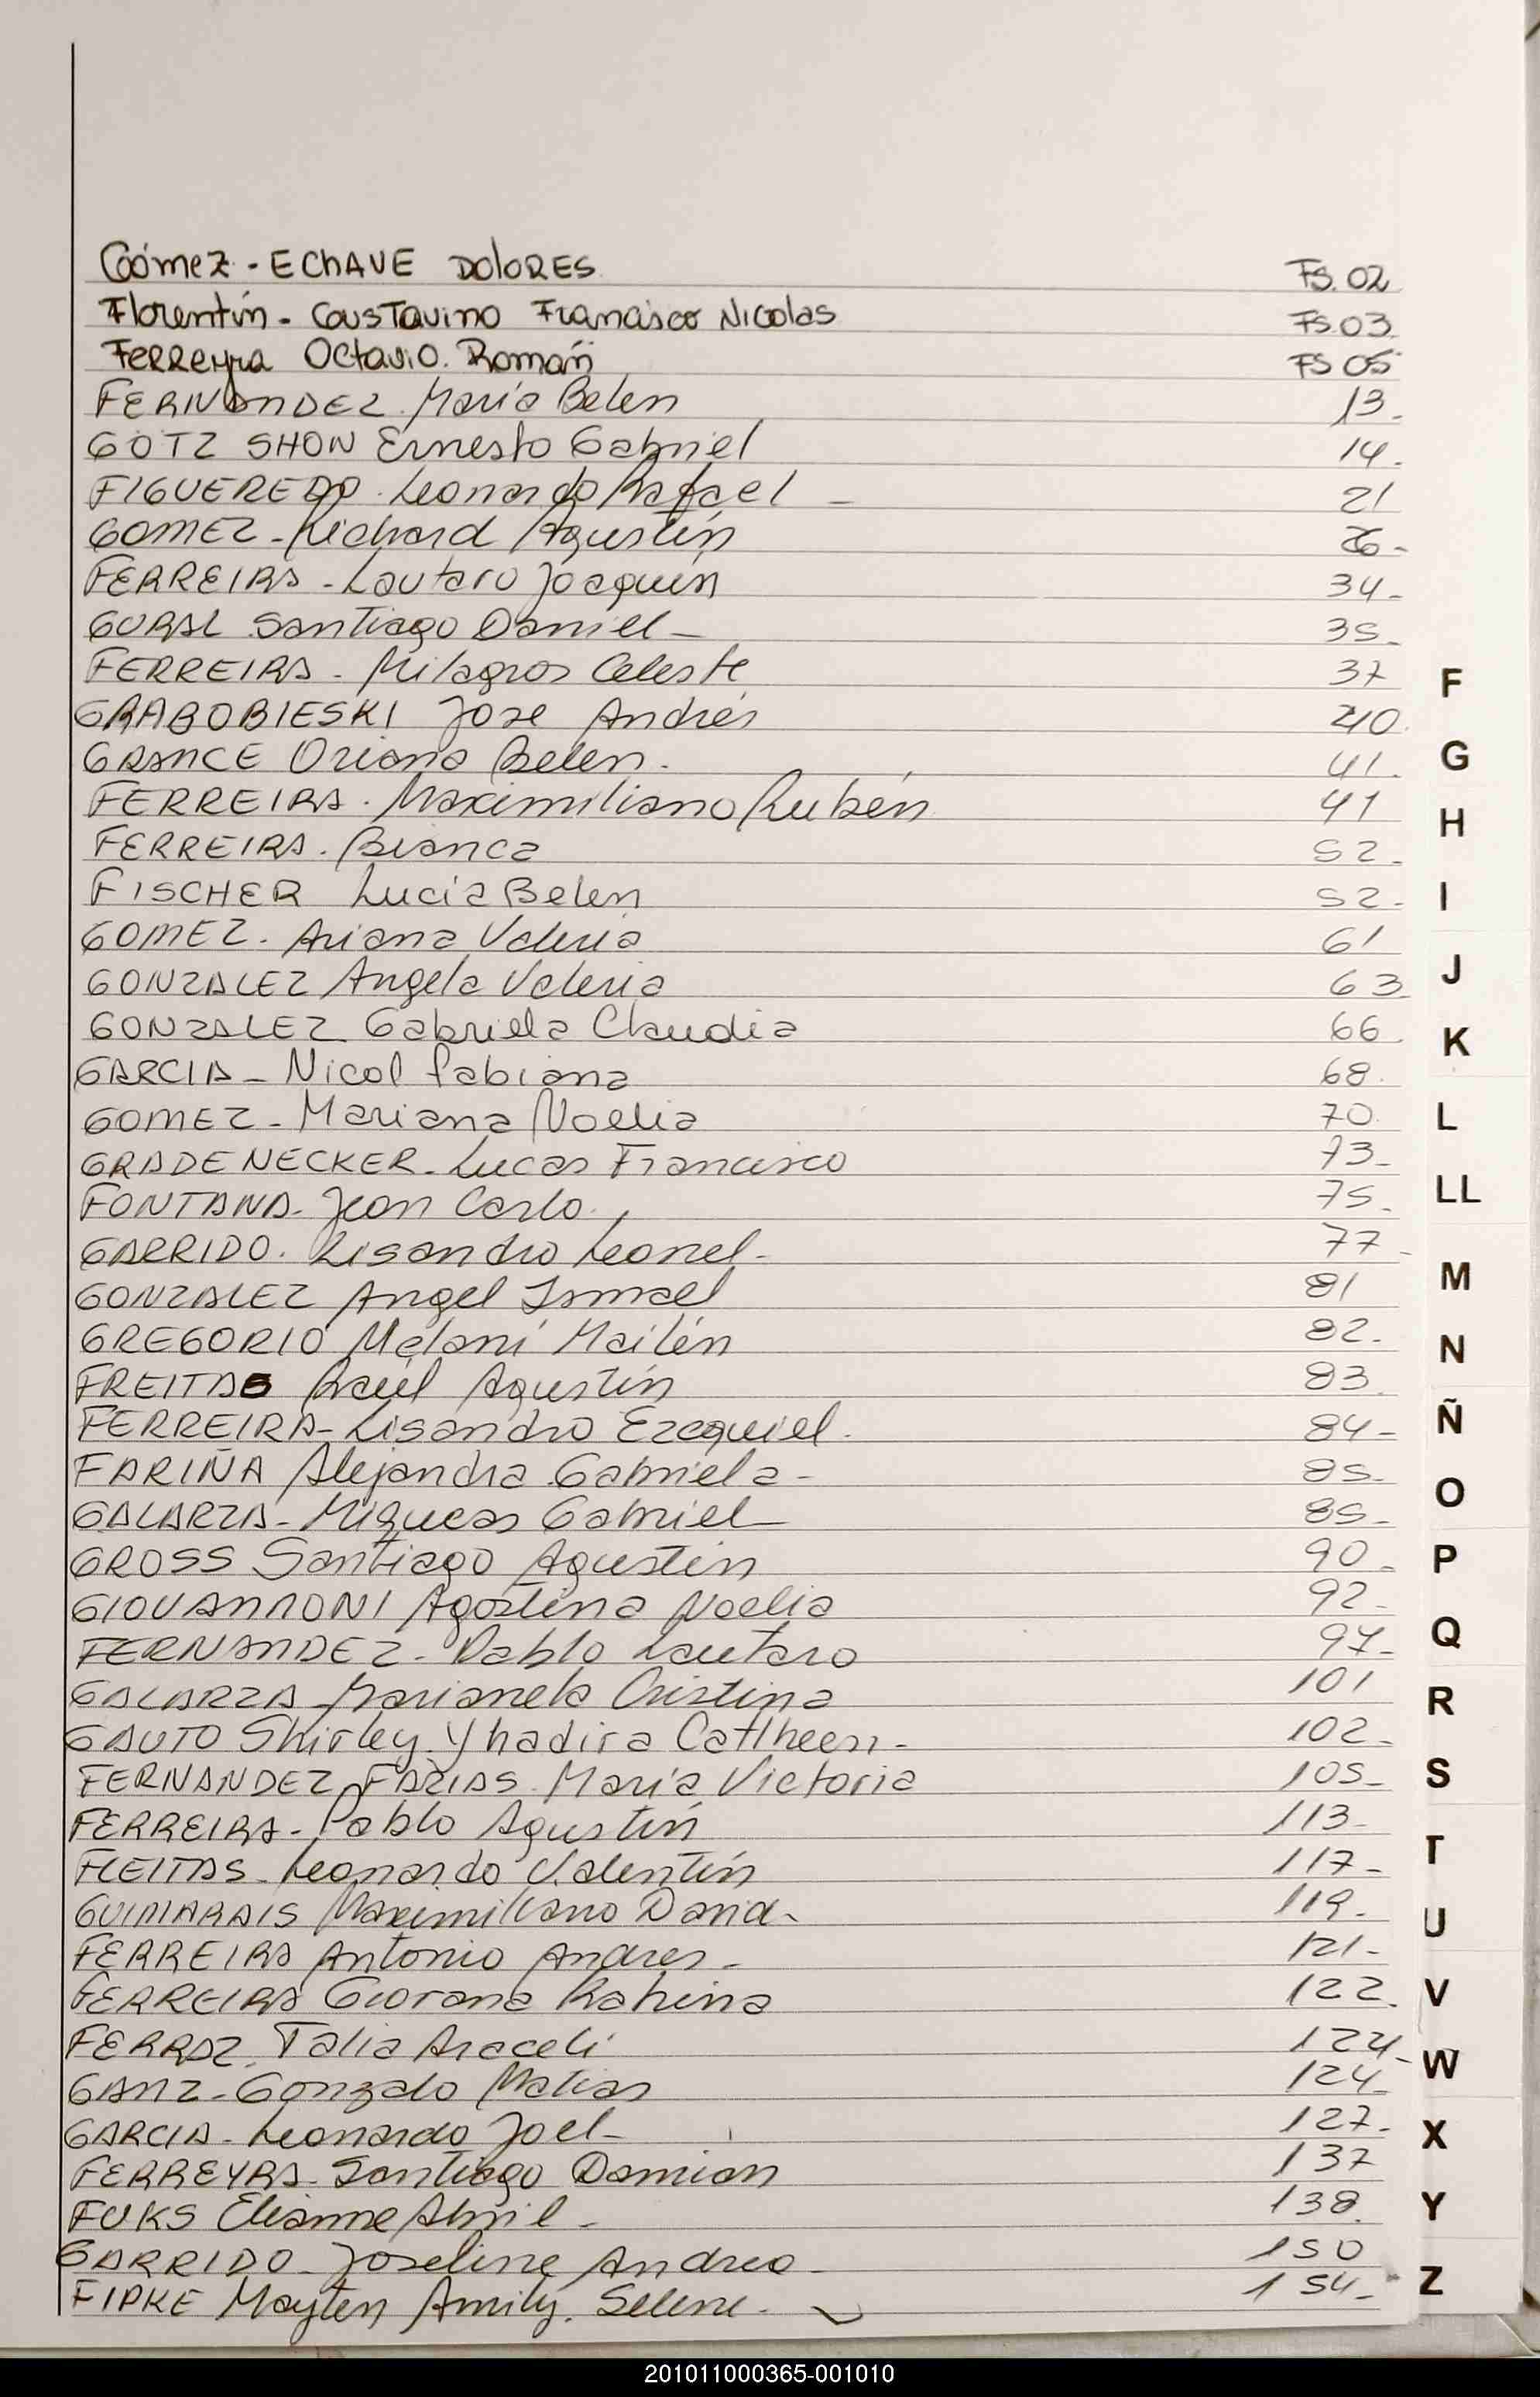 Goómez - EChAVE DOloRES FS. 02
Florentín - GausTavino Francisco Nicolas FS 03
FeRReyra Octavio Román FS 05
FERNANDEZ María Belen 13
GÖTZ SHON Ernesto Gabriel 14
FIGUEREDO Leonardo Rafael 21
GOMEZ - Richard Agustín 26
FERREIRA - Lautaro Joaquín 34
GURAL Santiago Daniel 35
FERREIRA - Milagros Celeste 37
GRABOBIESKI José Andrés 40
GRANCE Oriana Belen 41
FERREIRA. Maximiliano Rubén 41
FERREIRA. Bianca 52
FISCHER Lucia Belen 52
GOMEZ - Ariana Valeria 61
GONZALEZ Angela Valeria 63
GONZALEZ Gabriela Claudia 66
GARCIA - Nicol Fabiana 68
GOMEZ - Mariana Noelia 70
GRADENECKER - Lucas Francisco 73
FONTANA - Jean Carlo 75
GARRIDO. Lisandro Leonel 77
GONZALEZ Angel Ismael 81
GREGORIO Melani Mailén 82
FREITAS Raúl Agustín 83
FERREIRA - Lisandro Ezequiel. 84
FARIÑA Alejandra Gabriela 85
GALARZA - Miqueas Gabriel 85
GROSS Santiago Agustin 90
GIOVANNONI Agostina Noelia 92
FERNANDEZ - Pablo Lautaro 97
GALARZA Marianela Cristina 101
GAUTO Shirley Yhadira Cattheen 102
FERNANDEZ FARIAS María Victoria 105
FERREIRA - Pablo Agustín 113
FLEITAS - Leonardo Valentín 117
GUIMARAIS Maximiliano David 119
FERREIRA Antonio Andres 121
FERREIRA Giovana Rahina 122
FERRAZ Talia Araceli 124
GANZ - Gonzalo Matias 124
GARCIA - Leonardo Joel 127
FERREYRA Santiago Damian 137
FUKS Elianne Abril 138
GARRIDO Joseline Andrea 150
FIPKE Mayten Amily Selene 154
F
G
H
I
J
K
L
LL
M
N
Ñ
O
P
Q
R
S
T
U
V
W
X
Y
Z
201011000365-001010